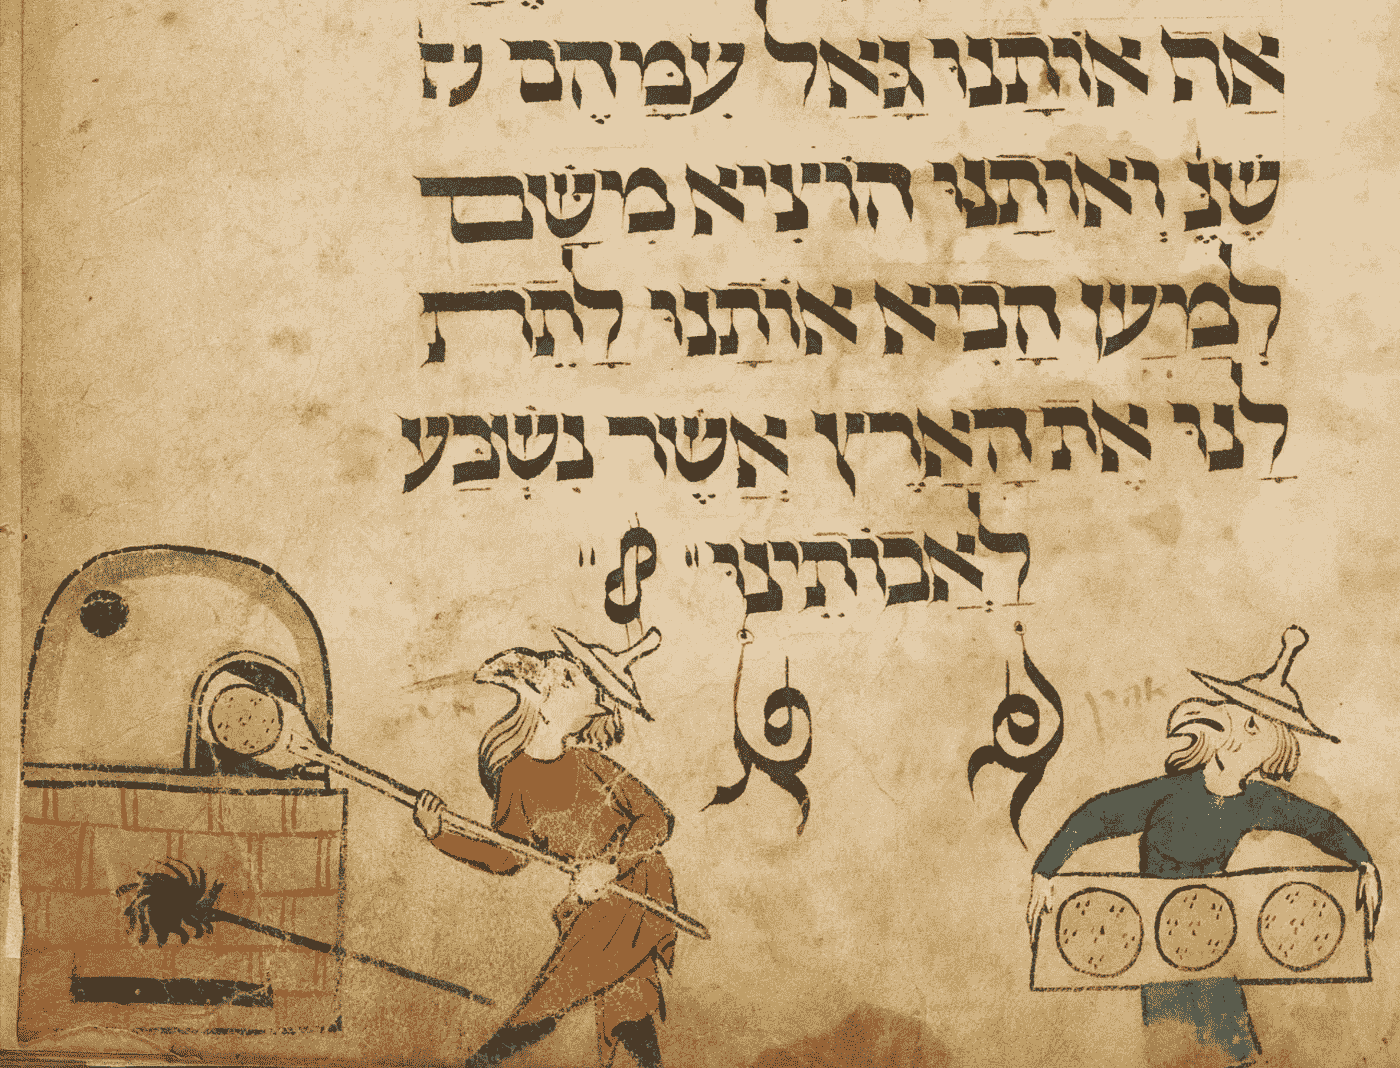 את אותנו גאל עמהם
שנ' ואותנו הוציא משם
למען הביא אותנו לתת
לנו את הארץ אשר נשבע
לאבותינו
אהרן